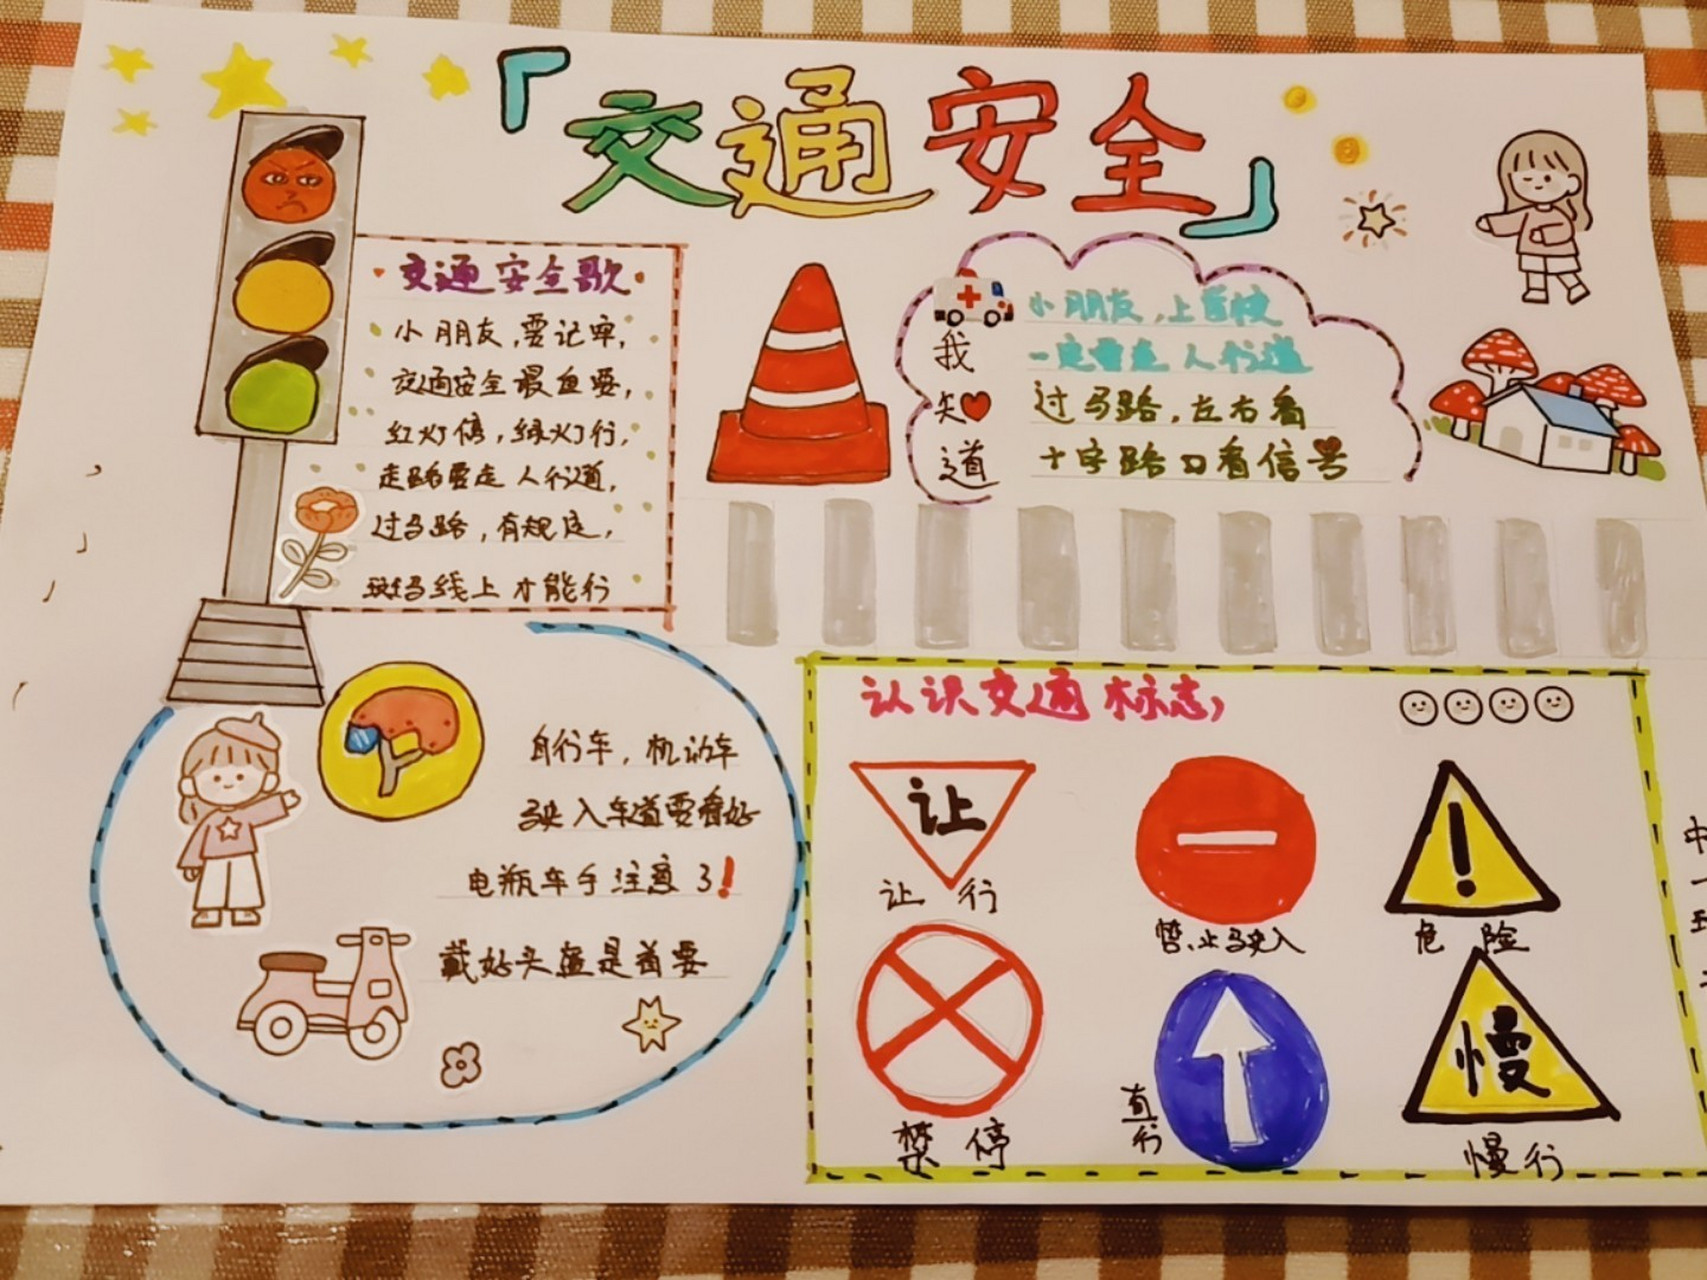 「交通安全」
交通安全歌
小朋友,要记牢,
交通安全最重要,
红灯停,绿灯行,
走路要走人行道,
过马路,有规定,
斑马线上才能行
我知道
小朋友,上学校
一定要走人行道
过马路,左右看
十字路口看信号
自行车,机动车
驶入车道要看好
电瓶车手注意了!
戴好头盔是首要
认识交通标志
让
让行
禁止驶入
!
危险
禁停
直行
慢
慢行